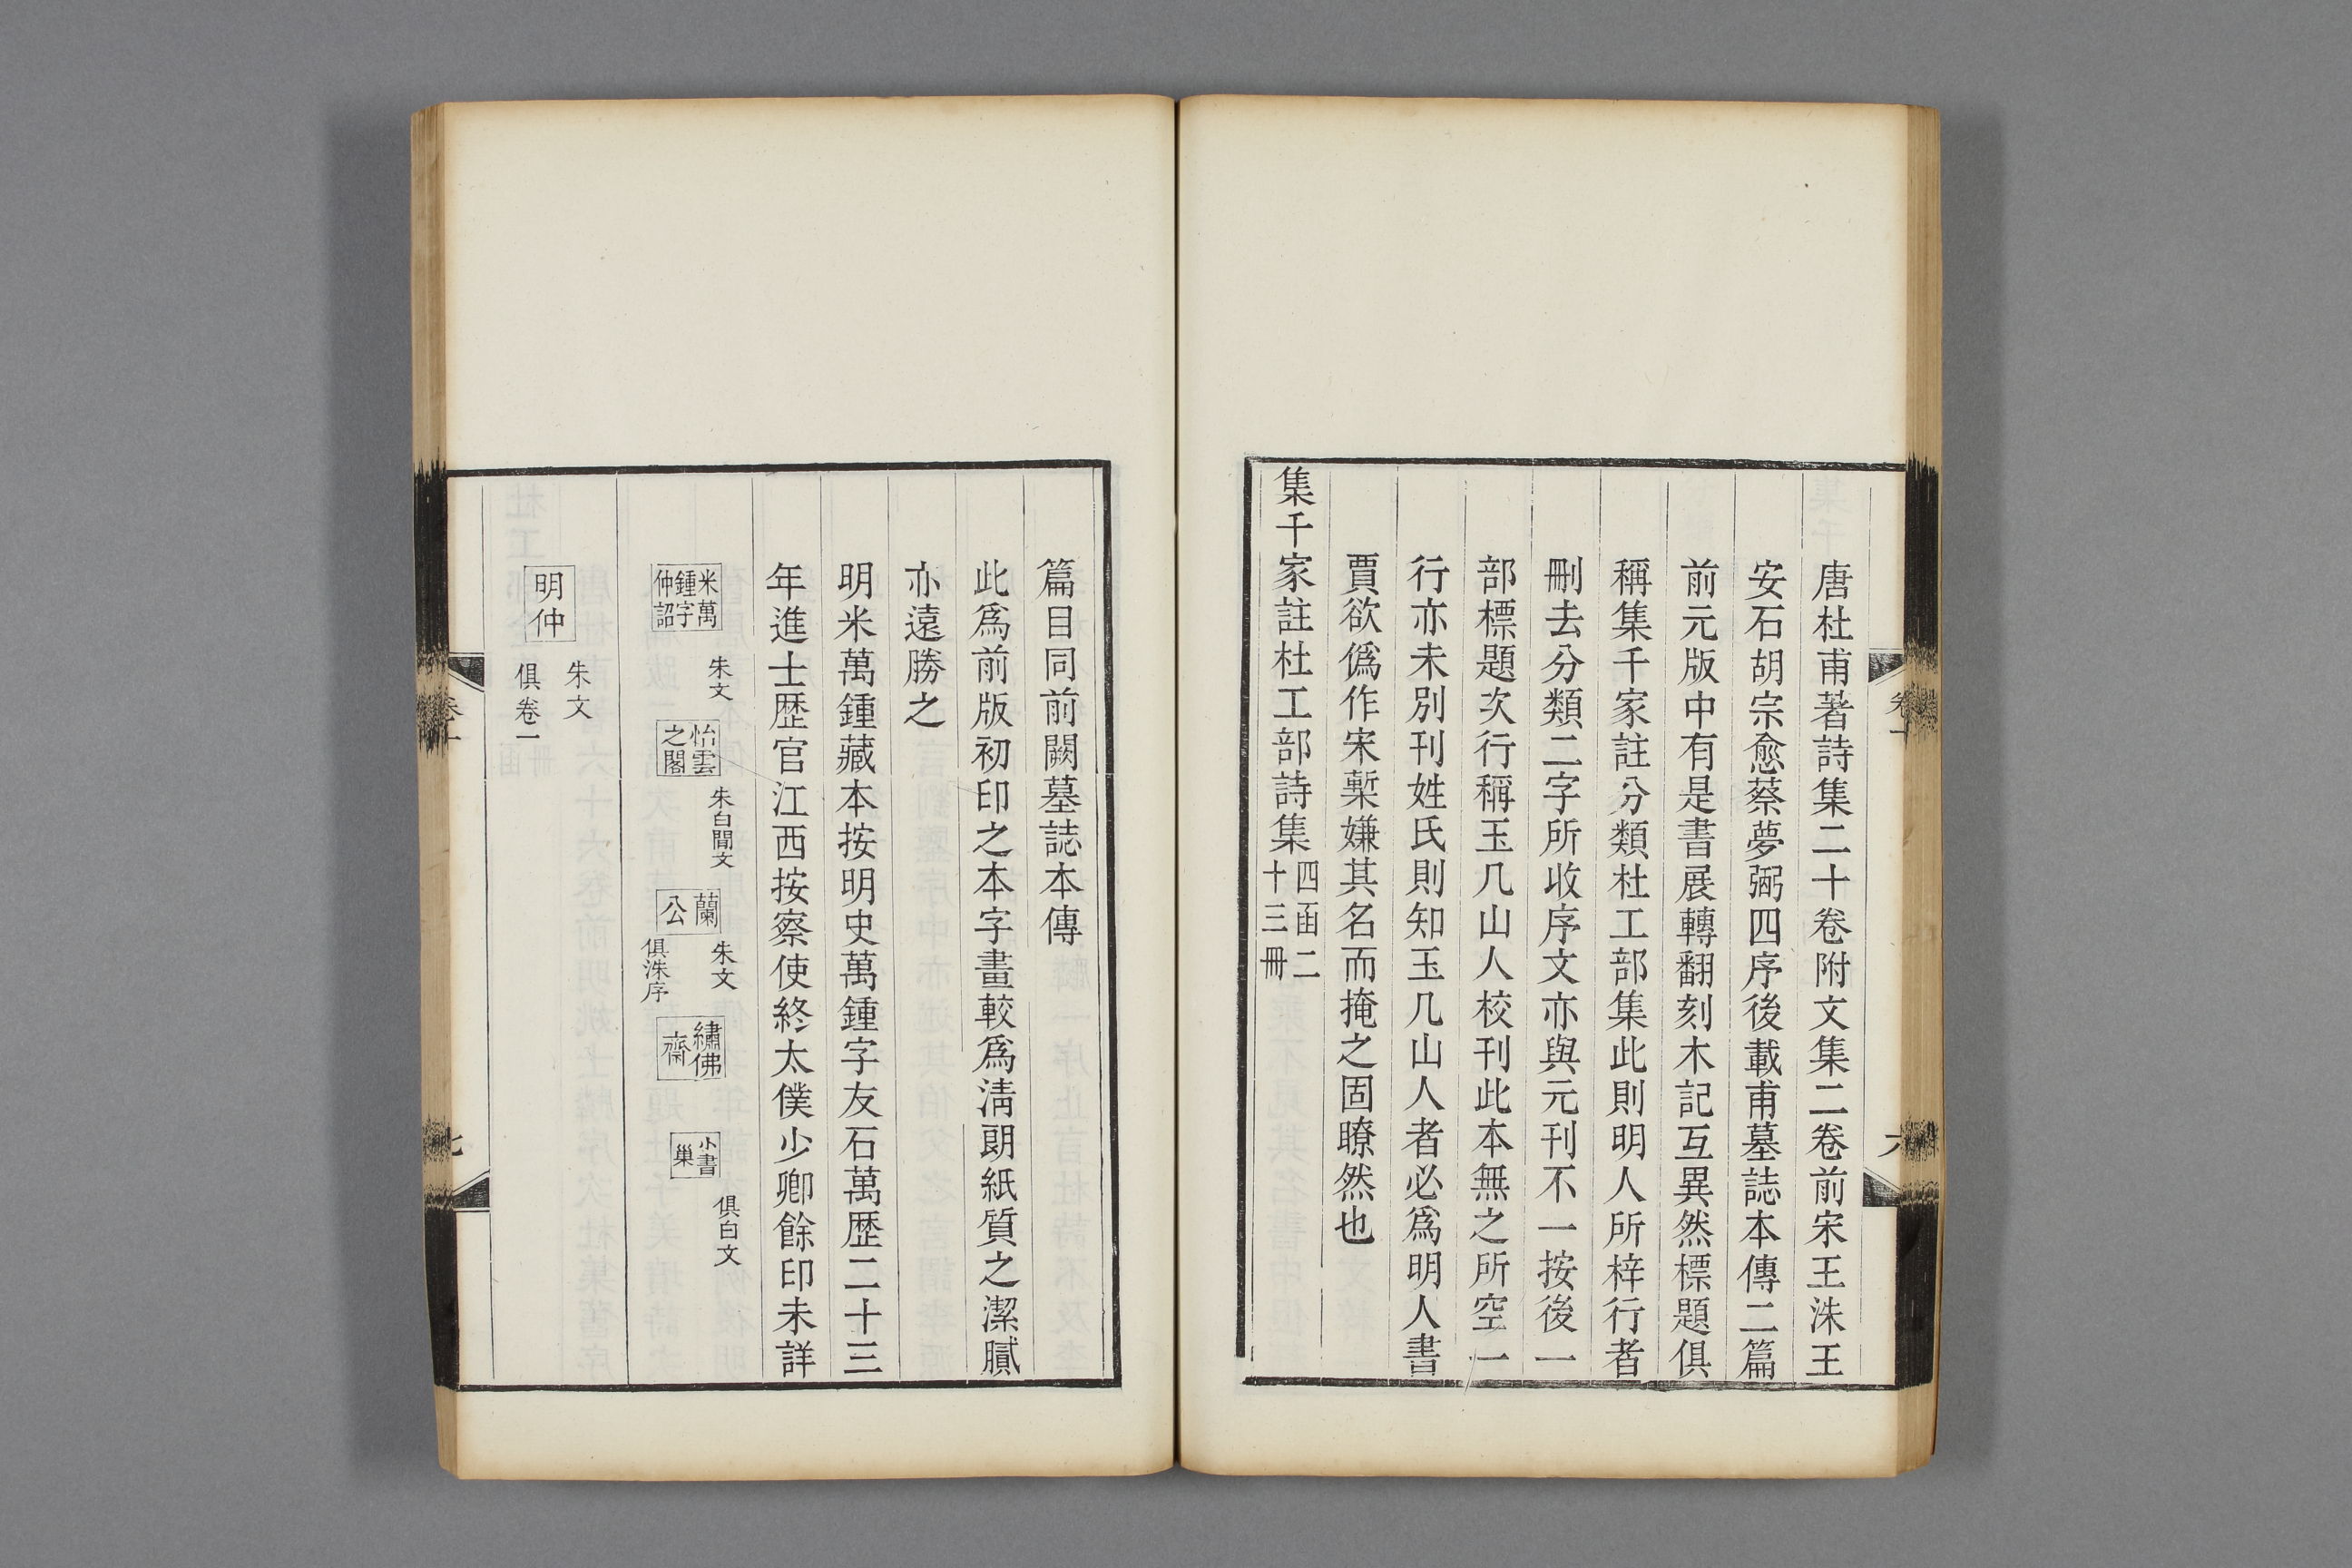 唐杜甫著詩集二十卷附文集二卷前宋王洙王
安石胡宗愈蔡夢弼四序後載甫墓誌本傳二篇
前元版中有是書展轉翻刻木記互異然標題俱
稱集千家註分類杜工部集此則明人所梓行者
刪去分類二字所收序文亦與元刊不一按後一
部標題次行稱玉几山人校刊此本無之所空一
行亦未別刊姓氏則知玉几山人者必爲明人書
賈欲僞作宋槧嫌其名而掩之固瞭然也
集千家註杜工部詩集
四函二
十三冊
篇目同前闕墓誌本傳
此爲前版初印之本字畫較爲淸朗紙質之潔膩
亦遠勝之
明米萬鍾藏本按明史萬鍾字友石萬歷二十三
年進士歷官江西按察使終太僕少卿餘印未詳
米萬
鍾字
仲詔
朱文
怡雲
之閣
朱白間文
蘭
公
朱文
俱洙序
繡佛
齋
小書
巢
俱白文
明仲
朱文
俱卷一